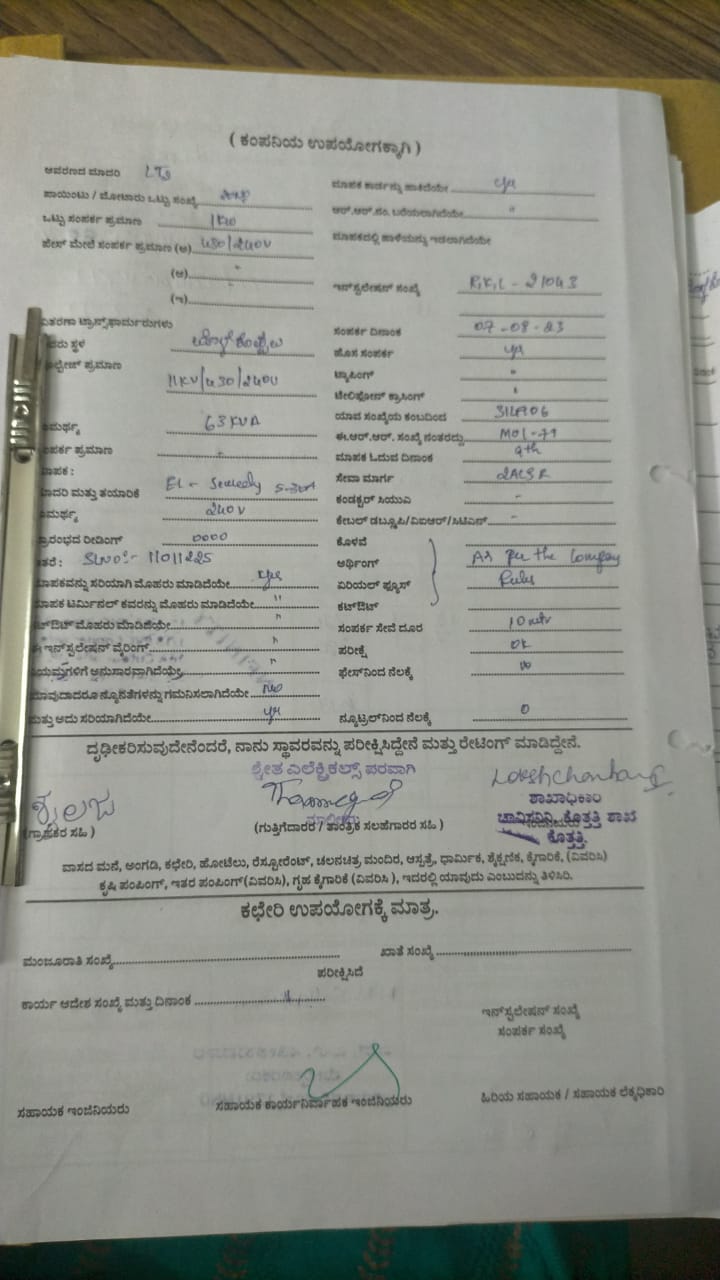 ( ಕಂಪನಿಯ ಉಪಯೋಗಕ್ಕಾಗಿ )
ಆವರಣದ ಮಾದರಿ
ಮಾಪಕ ಕಾರ್ಡನ್ನು ಹಾಕಿದೆಯೇ yes
ಪಾಯಿಂಟು / ಮೋಟಾರು ಒಟ್ಟು ಸಂಖ್ಯೆ
ಆರ್.ಆರ್.ನಂ. ಬರೆಯಲಾಗಿದೆಯೇ "
ಒಟ್ಟು ಸಂಪರ್ಕ ಪ್ರಮಾಣ 1KW
ಮಾಪಕದಲ್ಲಿ ಹಾಳೆಯನ್ನು ಇಡಲಾಗಿದೆಯೇ
ಪೇಸ್ ಮೇಲೆ ಸಂಪರ್ಕ ಪ್ರಮಾಣ (ಅ) 430/240V
(ಆ) "
(ಇ)
ಇನ್‌ಸ್ಟಲೇಷನ್ ಸಂಖ್ಯೆ 21043
ವಿತರಣಾ ಟ್ರಾನ್ಸ್‌ಫಾರ್ಮರುಗಳು
ಸಂಪರ್ಕ ದಿನಾಂಕ 07-08-23
ಸ್ಥಳ
ಹೊಸ ಸಂಪರ್ಕ yes
ಪ್ರಮಾಣ 11KV/430/240V
ಟ್ಯಾಪಿಂಗ್ "
ಟೆಲಿಫೋನ್ ಕ್ರಾಸಿಂಗ್ "
ಯಾವ ಸಂಖ್ಯೆಯ ಕಂಬದಿಂದ
63 KVA
ಈ.ಆರ್.ಆರ್. ಸಂಖ್ಯೆ ನಂತರದ್ದು MOL-79
ಸಂಪರ್ಕ ಪ್ರಮಾಣ
ಮಾಪಕ ಓದುವ ದಿನಾಂಕ 9th
ಮಾಪಕ :
ಸೇವಾ ಮಾರ್ಗ 2ACSR
ಮಾದರಿ ಮತ್ತು ತಯಾರಿಕೆ
ಕಂಡಕ್ಟರ್ ಸಿಯುವಿ -
240V
ಕೇಬಲ್ ಡಬ್ಲ್ಯೂಪಿ/ವಿಐಆರ್/ಸಿಟಿಎಸ್ -
ಪ್ರಾರಂಭದ ರೀಡಿಂಗ್ 0000
ಕೊಳವೆ
ಇತರೆ : SLNO:- 11011225
ಅರ್ಥಿಂಗ್ As per the Company
ಮಾಪಕವನ್ನು ಸರಿಯಾಗಿ ಮೊಹರು ಮಾಡಿದೆಯೇ yes
ಏರಿಯಲ್ ಫ್ಯೂಸ್ Rules
ಮಾಪಕ ಟರ್ಮಿನಲ್ ಕವರನ್ನು ಮೊಹರು ಮಾಡಿದೆಯೇ "
ಕಟ್‌ಔಟ್
ಕಟ್‌ಔಟ್ ಮೊಹರು ಮಾಡಿದೆಯೇ "
ಸಂಪರ್ಕ ಸೇವೆ ದೂರ 10 mtr
ಈ ಇನ್‌ಸ್ಟಲೇಷನ್ ವೈರಿಂಗ್ "
ಪರೀಕ್ಷೆ OK
ನಿಯಮಗಳಿಗೆ ಅನುಸಾರವಾಗಿದೆಯೇ "
ಫೇಸ್‌ನಿಂದ ನೆಲಕ್ಕೆ
ಯಾವುದಾದರೂ ನ್ಯೂನತೆಗಳನ್ನು ಗಮನಿಸಲಾಗಿದೆಯೇ No
ಮತ್ತು ಅದು ಸರಿಯಾಗಿದೆಯೇ yes
ನ್ಯೂಟ್ರಲ್‌ನಿಂದ ನೆಲಕ್ಕೆ 0
ದೃಢೀಕರಿಸುವುದೇನೆಂದರೆ, ನಾನು ಸ್ಥಾವರವನ್ನು ಪರೀಕ್ಷಿಸಿದ್ದೇನೆ ಮತ್ತು ರೇಟಿಂಗ್ ಮಾಡಿದ್ದೇನೆ.
ಶ್ವೇತ ಎಲೆಕ್ಟ್ರಿಕಲ್ಸ್ ಪರವಾಗಿ
ಶೈಲಜ
ಶಾಖಾಧಿಕಾರಿ
ಚಾವಿಸನಿನಿ, ಕೊತ್ತತ್ತಿ ಶಾಖೆ
ಕೊತ್ತತ್ತಿ
(ಗ್ರಾಹಕರ ಸಹಿ )
(ಗುತ್ತಿಗೆದಾರರ / ತಾಂತ್ರಿಕ ಸಲಹೆಗಾರರ ಸಹಿ )
ವಾಸದ ಮನೆ, ಅಂಗಡಿ, ಕಛೇರಿ, ಹೋಟೆಲು, ರೆಸ್ಟೋರೆಂಟ್, ಚಲನಚಿತ್ರ ಮಂದಿರ, ಆಸ್ಪತ್ರೆ, ಧಾರ್ಮಿಕ, ಶೈಕ್ಷಣಿಕ, ಕೈಗಾರಿಕೆ, (ವಿವರಿಸಿ)
ಕೃಷಿ ಪಂಪಿಂಗ್, ಇತರ ಪಂಪಿಂಗ್(ವಿವರಿಸಿ), ಗೃಹ ಕೈಗಾರಿಕೆ (ವಿವರಿಸಿ ), ಇದರಲ್ಲಿ ಯಾವುದು ಎಂಬುದನ್ನು ತಿಳಿಸಿರಿ.
ಕಛೇರಿ ಉಪಯೋಗಕ್ಕೆ ಮಾತ್ರ.
ಮಂಜೂರಾತಿ ಸಂಖ್ಯೆ
ಖಾತೆ ಸಂಖ್ಯೆ
ಪರೀಕ್ಷಿಸಿದೆ
ಕಾರ್ಯ ಆದೇಶ ಸಂಖ್ಯೆ ಮತ್ತು ದಿನಾಂಕ
ಇನ್‌ಸ್ಟಲೇಷನ್ ಸಂಖ್ಯೆ
ಸಂಪರ್ಕ ಸಂಖ್ಯೆ
ಸಹಾಯಕ ಇಂಜಿನಿಯರು
ಸಹಾಯಕ ಕಾರ್ಯನಿರ್ವಾಹಕ ಇಂಜಿನಿಯರು
ಹಿರಿಯ ಸಹಾಯಕ / ಸಹಾಯಕ ಲೆಕ್ಕಾಧಿಕಾರಿ